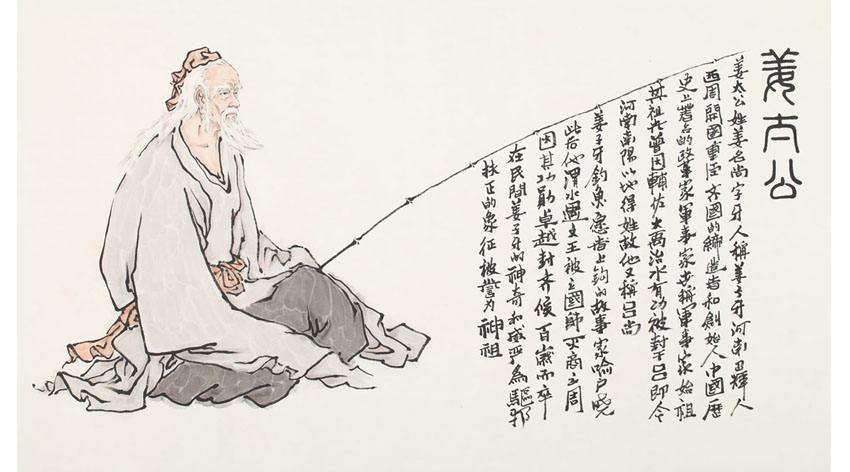 姜太公
姜太公姓姜名尚字牙人稱姜子牙河南卫輝人
西周開國重臣齐國的締造者和創始人中國歷
史上著名的政事家軍事家世稱軍事家始祖
其祖先曾因輔佐大禹治水有功被封于吕即今
河南南陽以地得姓故他又稱吕尚
姜子牙釣魚愿者上钩的故事家喻户晓
此后他渭水遇文王被立國師灭商立周
因其功勛卓越封齐侯百歲而卒
在民間姜子牙的神奇和威严為驅邪
扶正的象征被誉为神祖